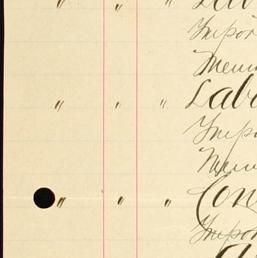 " " " Lab
Impor
Mem
" " " Labo
Impo
Mem
" " " Con
Impor